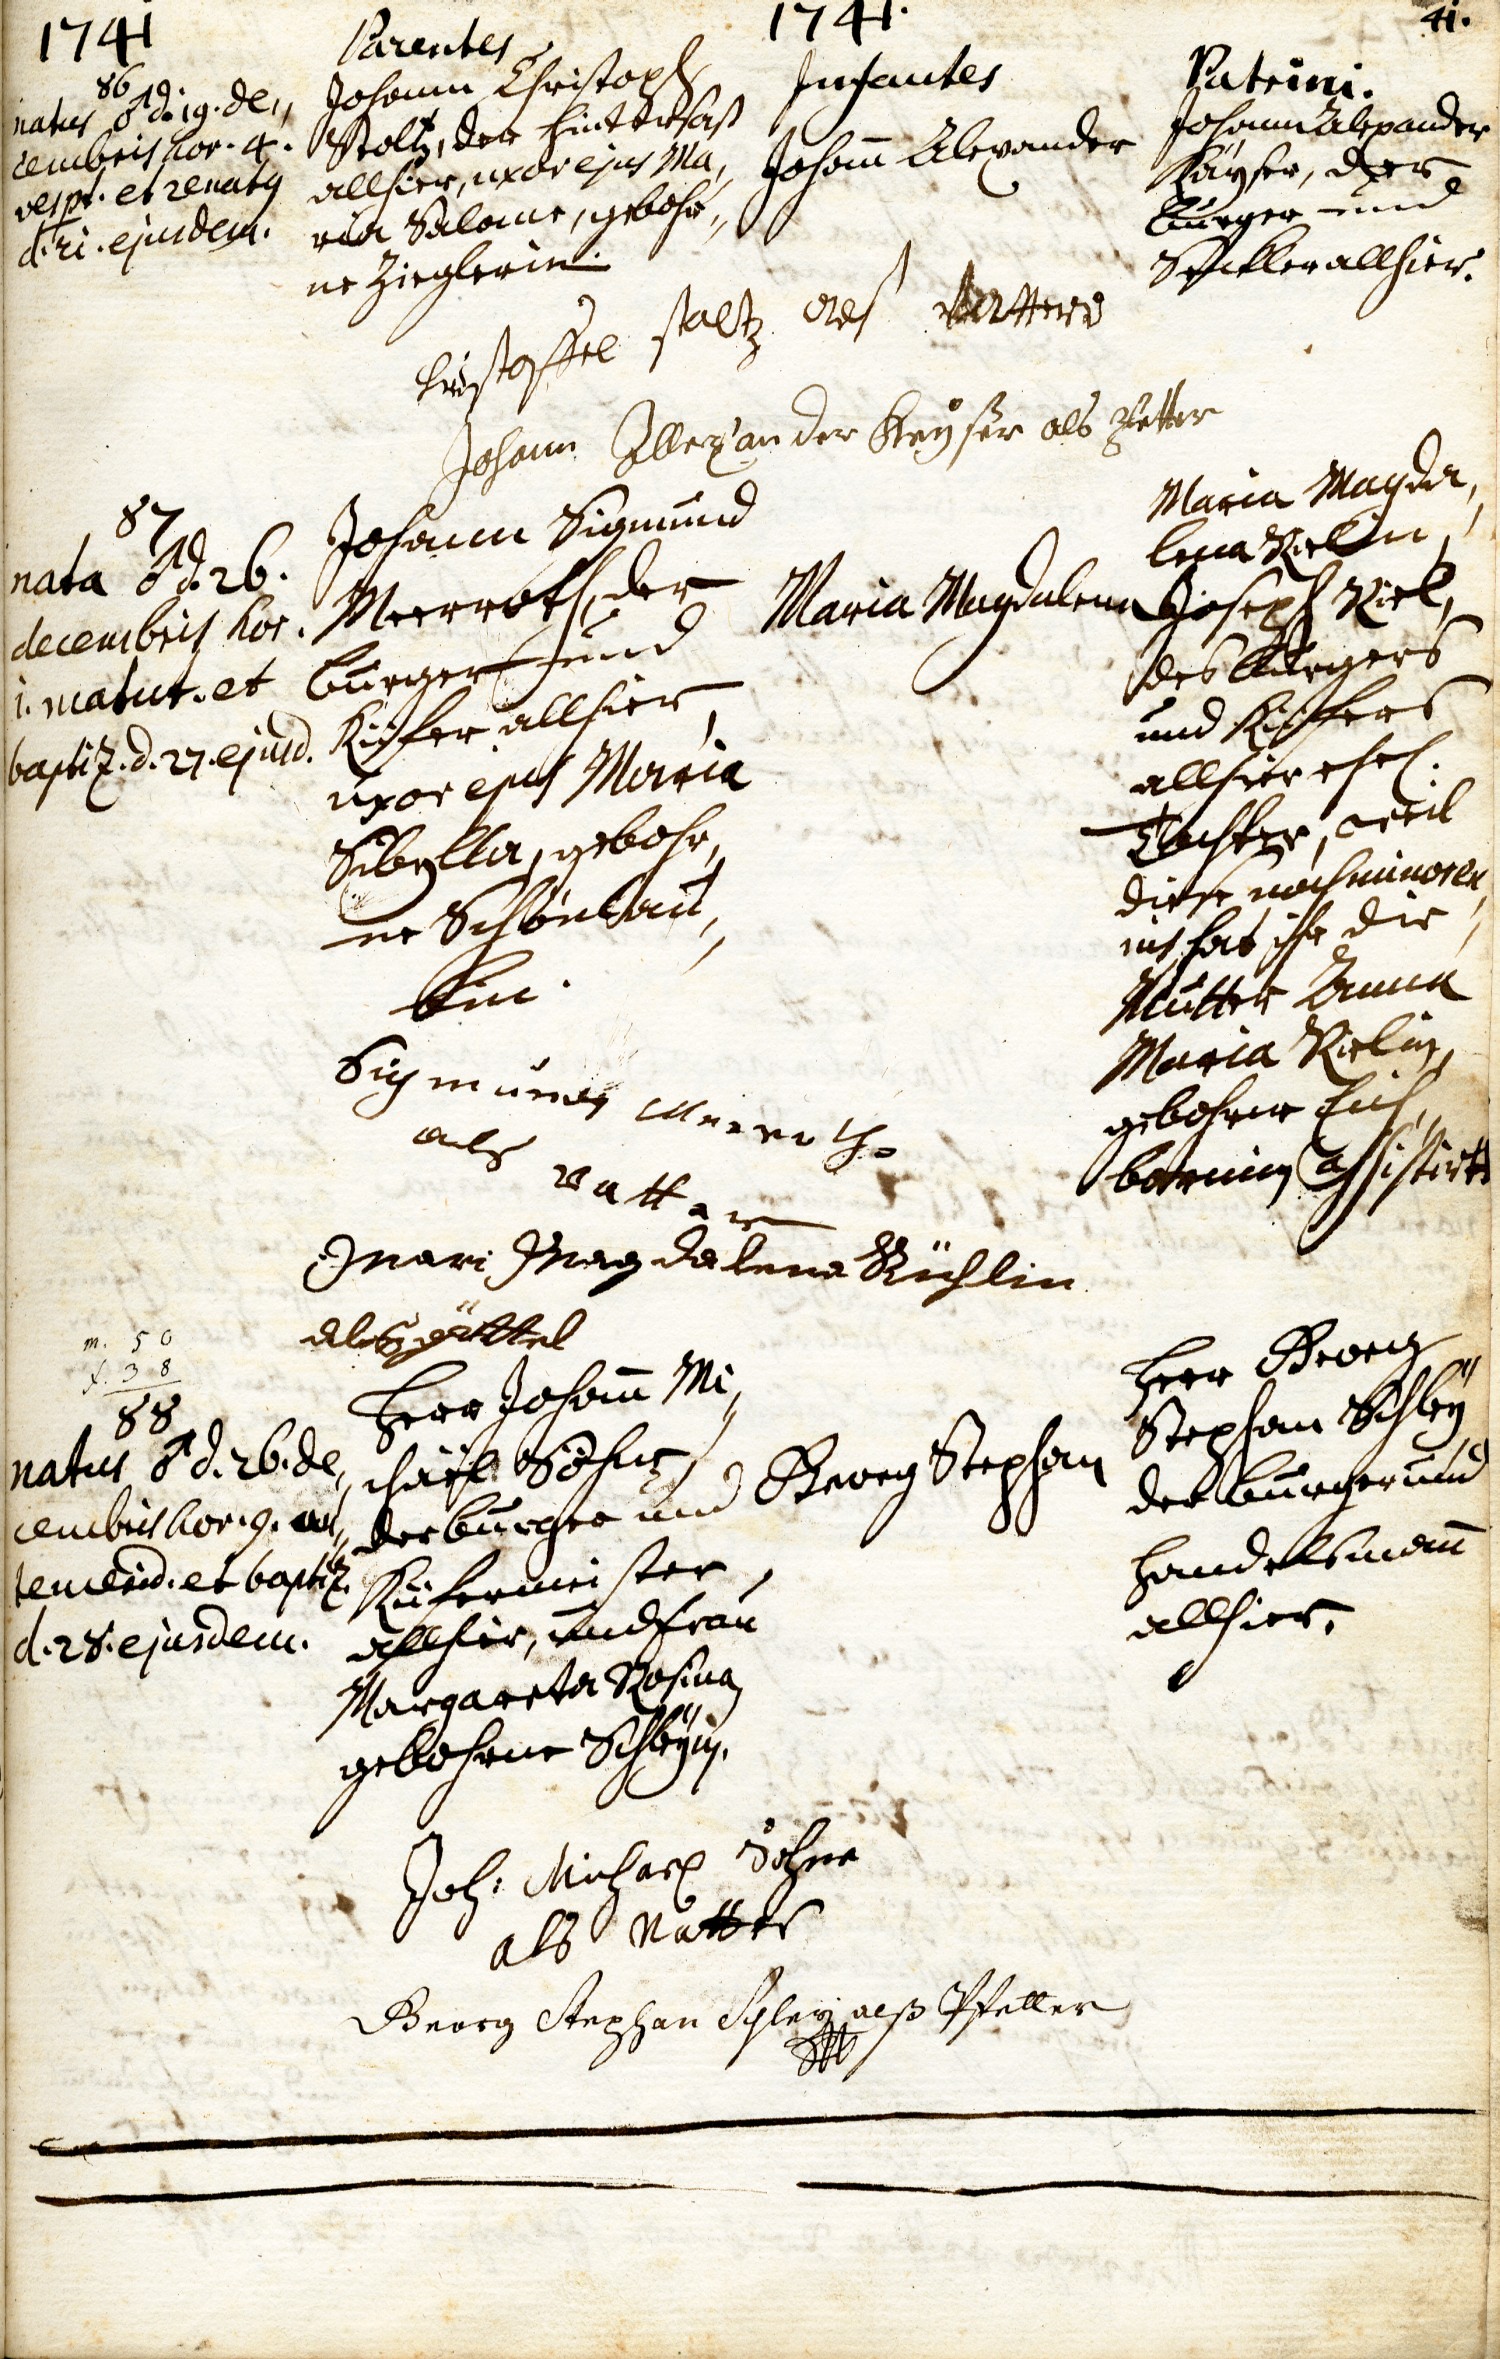 1741
1741.
41.
Parentes
Infantes
Patrini.
86
natus ♂ d. 19. de„
cembris hor. 4.
vespt. et renatus
d. 21. ejusdem.
Johann Christoph
Stoltz, der Hintersaß
allhier, uxor ejus Ma„
ria Salome, gebohr„
ne Zieglerin.
Johann Alexander
Johann Alexander
Kayser, der
burger und
Seckler allhier.
Christoffel Staltz als Vatter
Johann Allexander Keyser als Petter
87
nata ♂ d. 26.
decembris hor.
1. matut. et
baptiz. d. 27. ejusd.
Johann Sigmund
Meerroth, der
burger und
Kiefer allhier,
uxor ejus Maria
Sibylla, gebohr„
ne Schönlau„
bin.
Maria Magdalena
Maria Magda„
lena Rielin,
Joseph Riel,
des burgers
und Kiefers
allhier ehel.
Tochter, weil
diese noch minoren„
nis hat ihr die
Mutter Anna
Maria Rielin,
gebohrne Eich„
bornin assistirt.
Sigmund Meeroth
als Vatter
Mari Magdalena Rühlin
als göttel
m. 50
f. 38
88
natus ♂ d. 26. de„
cembris hor. 9. an„
temerid. et baptiz.
d. 28. ejusdem.
Herr Johann Mi„
chael Söhne,
der burger und
Kiefermeister
allhier, und frau
Margareta Rosina,
gebohrne Schleyin.
Georg Stephan
Herr Georg
Stephan Schley
der burger und
Handelsmann
allhier.
Joh: Michael Söhne
als Vatter
Georg Stephan Schley alß Pfetter